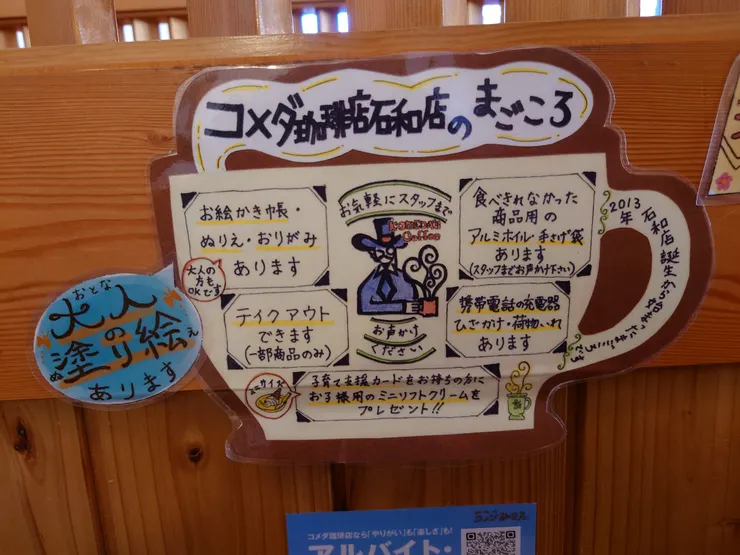 コメダ珈琲店石和店のまごころ
お絵かき帳・
ぬりえ・おりがみ
あります
大人
の方も
OKです
お気軽にスタッフまで
お声かけ
ください
食べきれなかった
商品用の
アルミホイル・手さげ袋
あります
(スタッフまでお声かけ下さい)
テイクアウト
できます
(一部商品のみ)
携帯電話の充電器
ひざかけ・荷物いれ
あります
ミニサイズ
子育て支援カードをお持ちの方に
お子様用のミニソフトクリームを
プレゼント!!
2013年 石和店誕生から
おとな
大人
の
塗り絵
ぬ
え
あります
コメダ珈琲店なら「やりがい」も「楽しさ」も!
アルバイト・